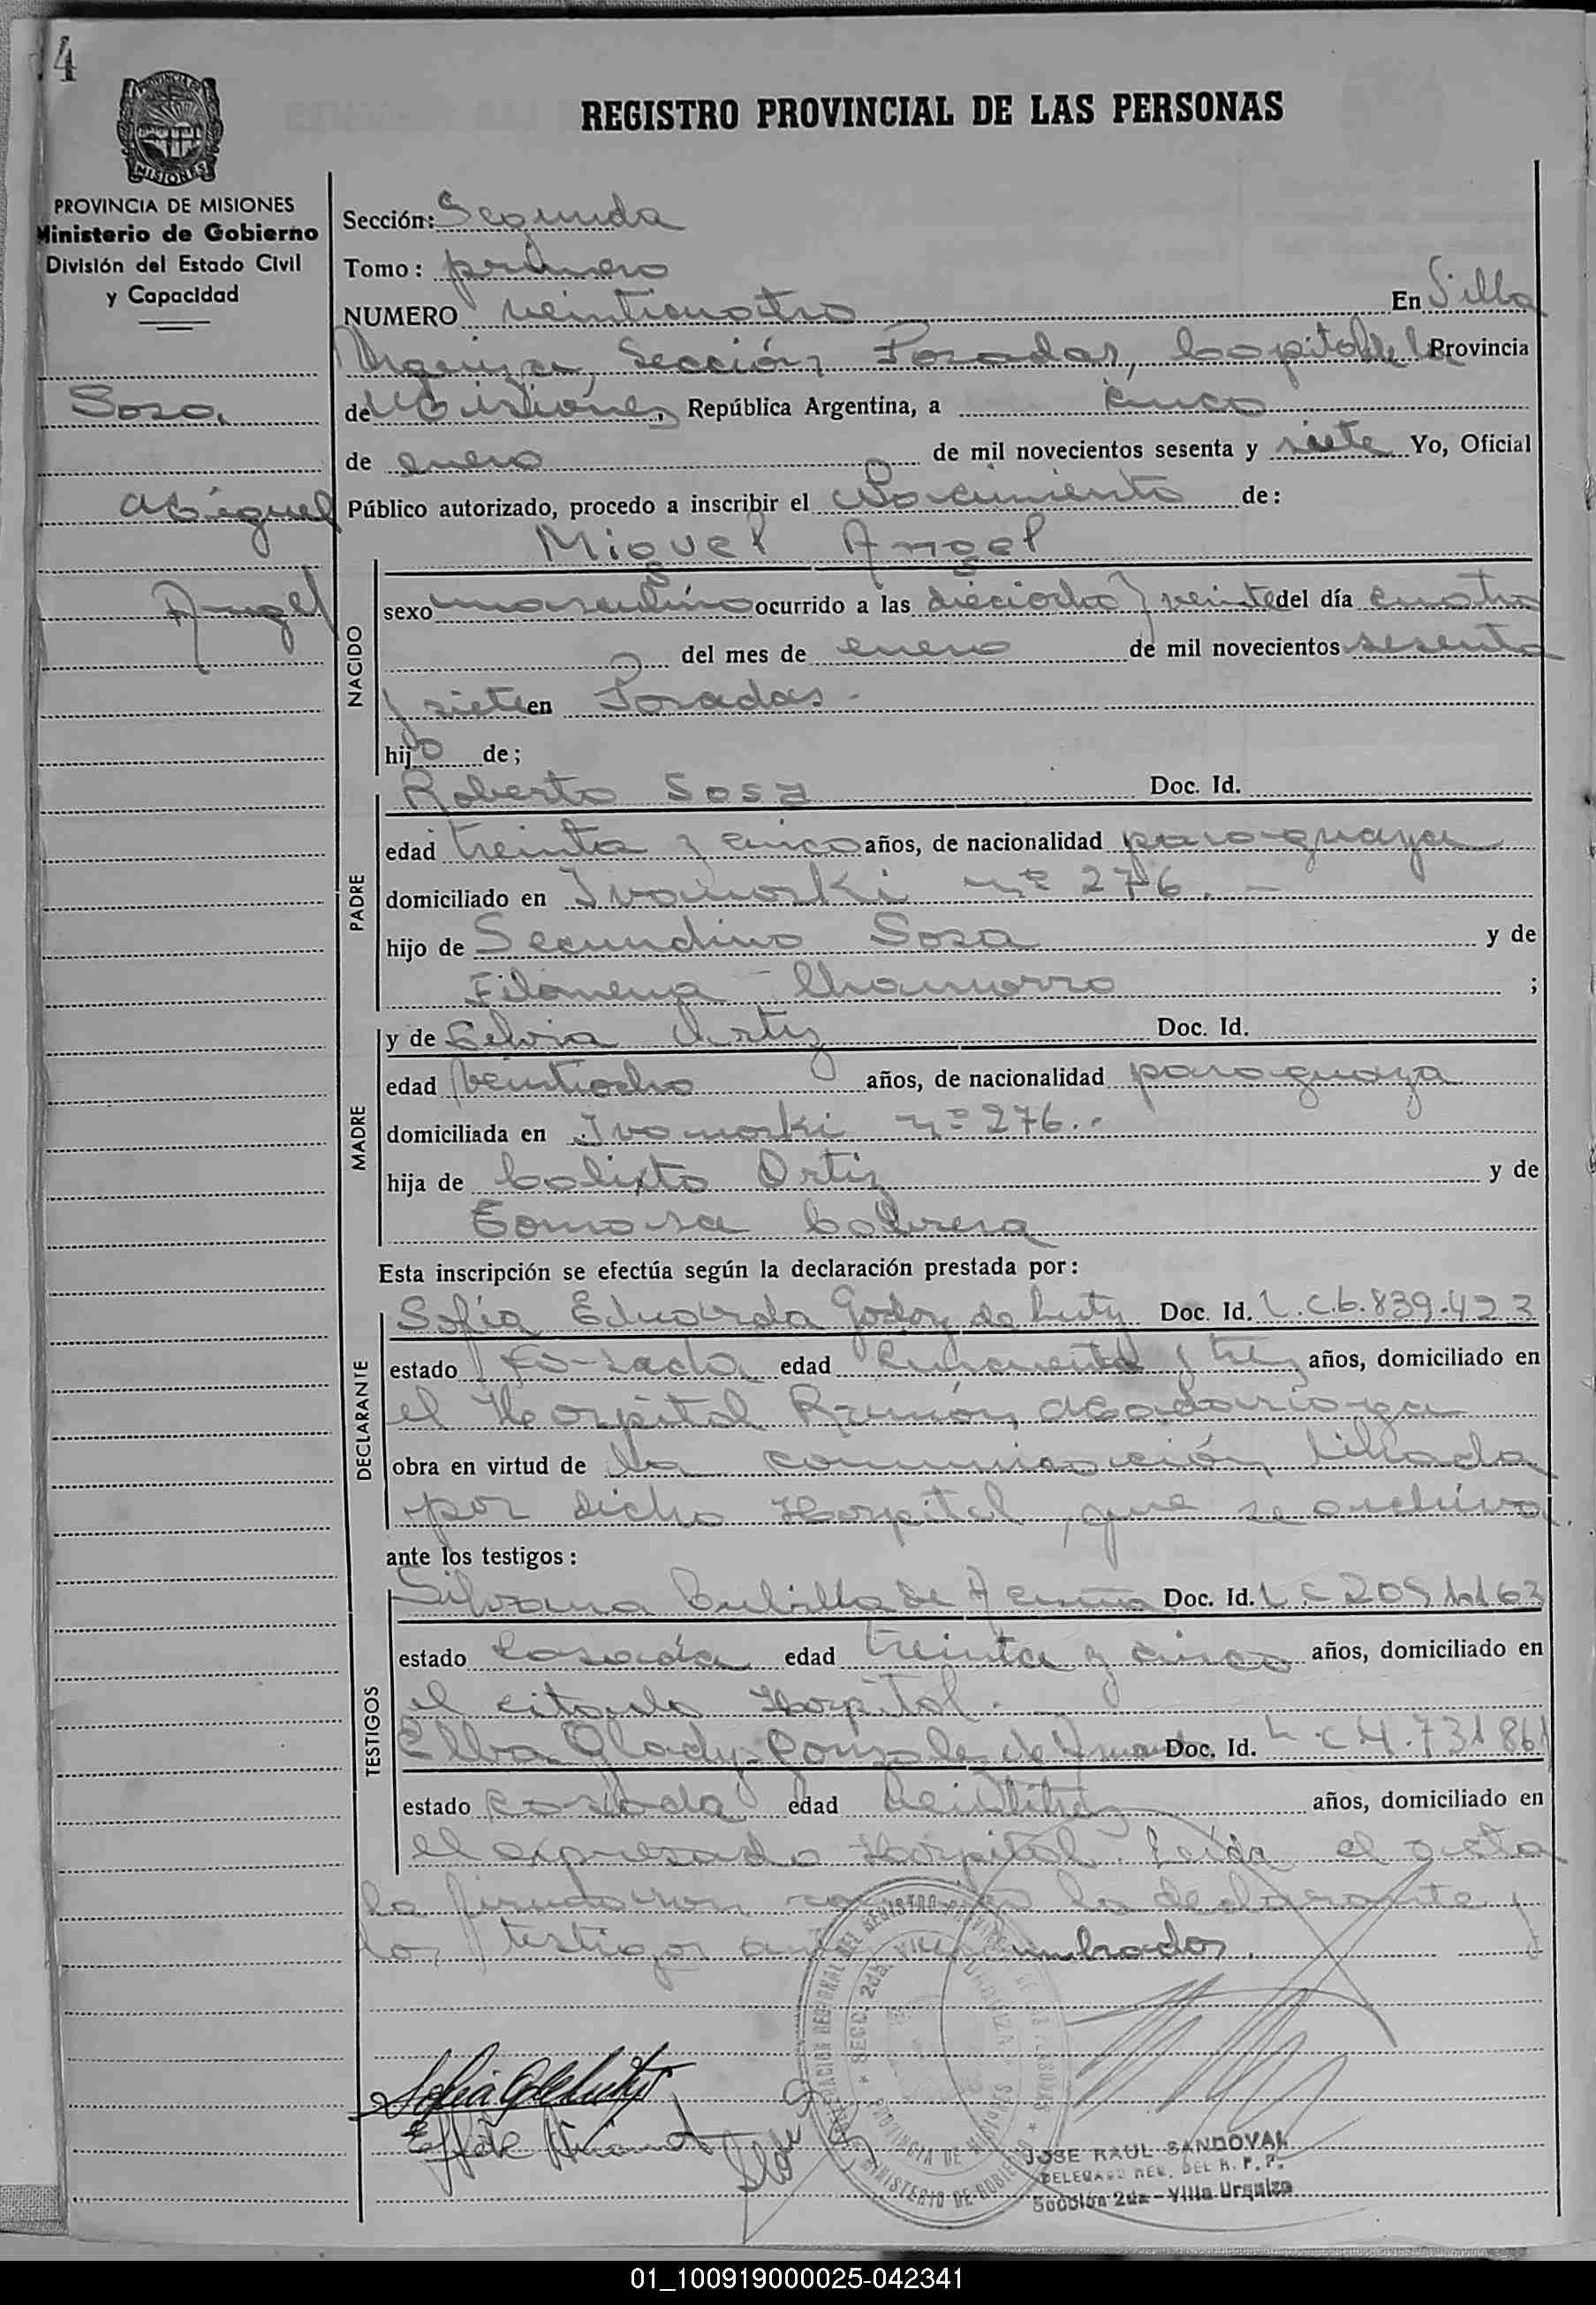 4
PROVINCIA DE
MISIONES
REGISTRO PROVINCIAL DE LAS PERSONAS
PROVINCIA DE MISIONES
Ministerio de Gobierno
División del Estado Civil
y Capacidad
Sosa
Miguel
Angel
Sección: Segunda
Tomo: primero
NUMERO veinticuatro En Villa
Urquiza, Sección, Posadas, Capital de la Provincia
de Misiones, República Argentina, a cinco
de enero de mil novecientos sesenta y siete Yo, Oficial
Público autorizado, procedo a inscribir el Nacimiento de:
Miguel Angel
NACIDO
sexo masculino ocurrido a las dieciocho y veinte del día cuatro
del mes de enero de mil novecientos sesenta
y siete en Posadas -
hijo de;
PADRE
Roberto Sosa Doc. Id.
edad treinta y cinco años, de nacionalidad paraguaya
domiciliado en Ivanoski nº 276. -
hijo de Secundino Sosa y de
Filomena Chamorro ;
MADRE
y de Celvia Ortiz Doc. Id.
edad veintiocho años, de nacionalidad paraguaya
domiciliada en Ivanoski nº 276.-
hija de Calixto Ortiz y de
Cabrera
Esta inscripción se efectúa según la declaración prestada por:
DECLARANTE
Sofía Eduarda Godoy de Doc. Id. L.C.6.839.423
estado casada edad cincuenta y tres años, domiciliado en
el Hospital Ramón Madariaga
obra en virtud de la comunicación librada
por dicho Hospital, que se archiva.
ante los testigos:
TESTIGOS
Silvana Cubilla de Acuña Doc. Id. L.C
estado casada edad treinta y cinco años, domiciliado en
el citado Hospital.
Elba Glady Gonzalez de Doc. Id. L.C 4.731 861
estado casada edad veintitres años, domiciliado en
el expresado Hospital. Leída el acta
la firmaron conmigo la declarante y
los testigos nombrados.
SECC. 2da. VILLA URQUIZA
PROVINCIA DE MISIONES
MINISTERIO DE GOBIERNO
JOSE RAUL SANDOVAL
DELEGADO REG. DEL R. P. P.
Sección 2da - Villa Urquiza
01_100919000025-042341